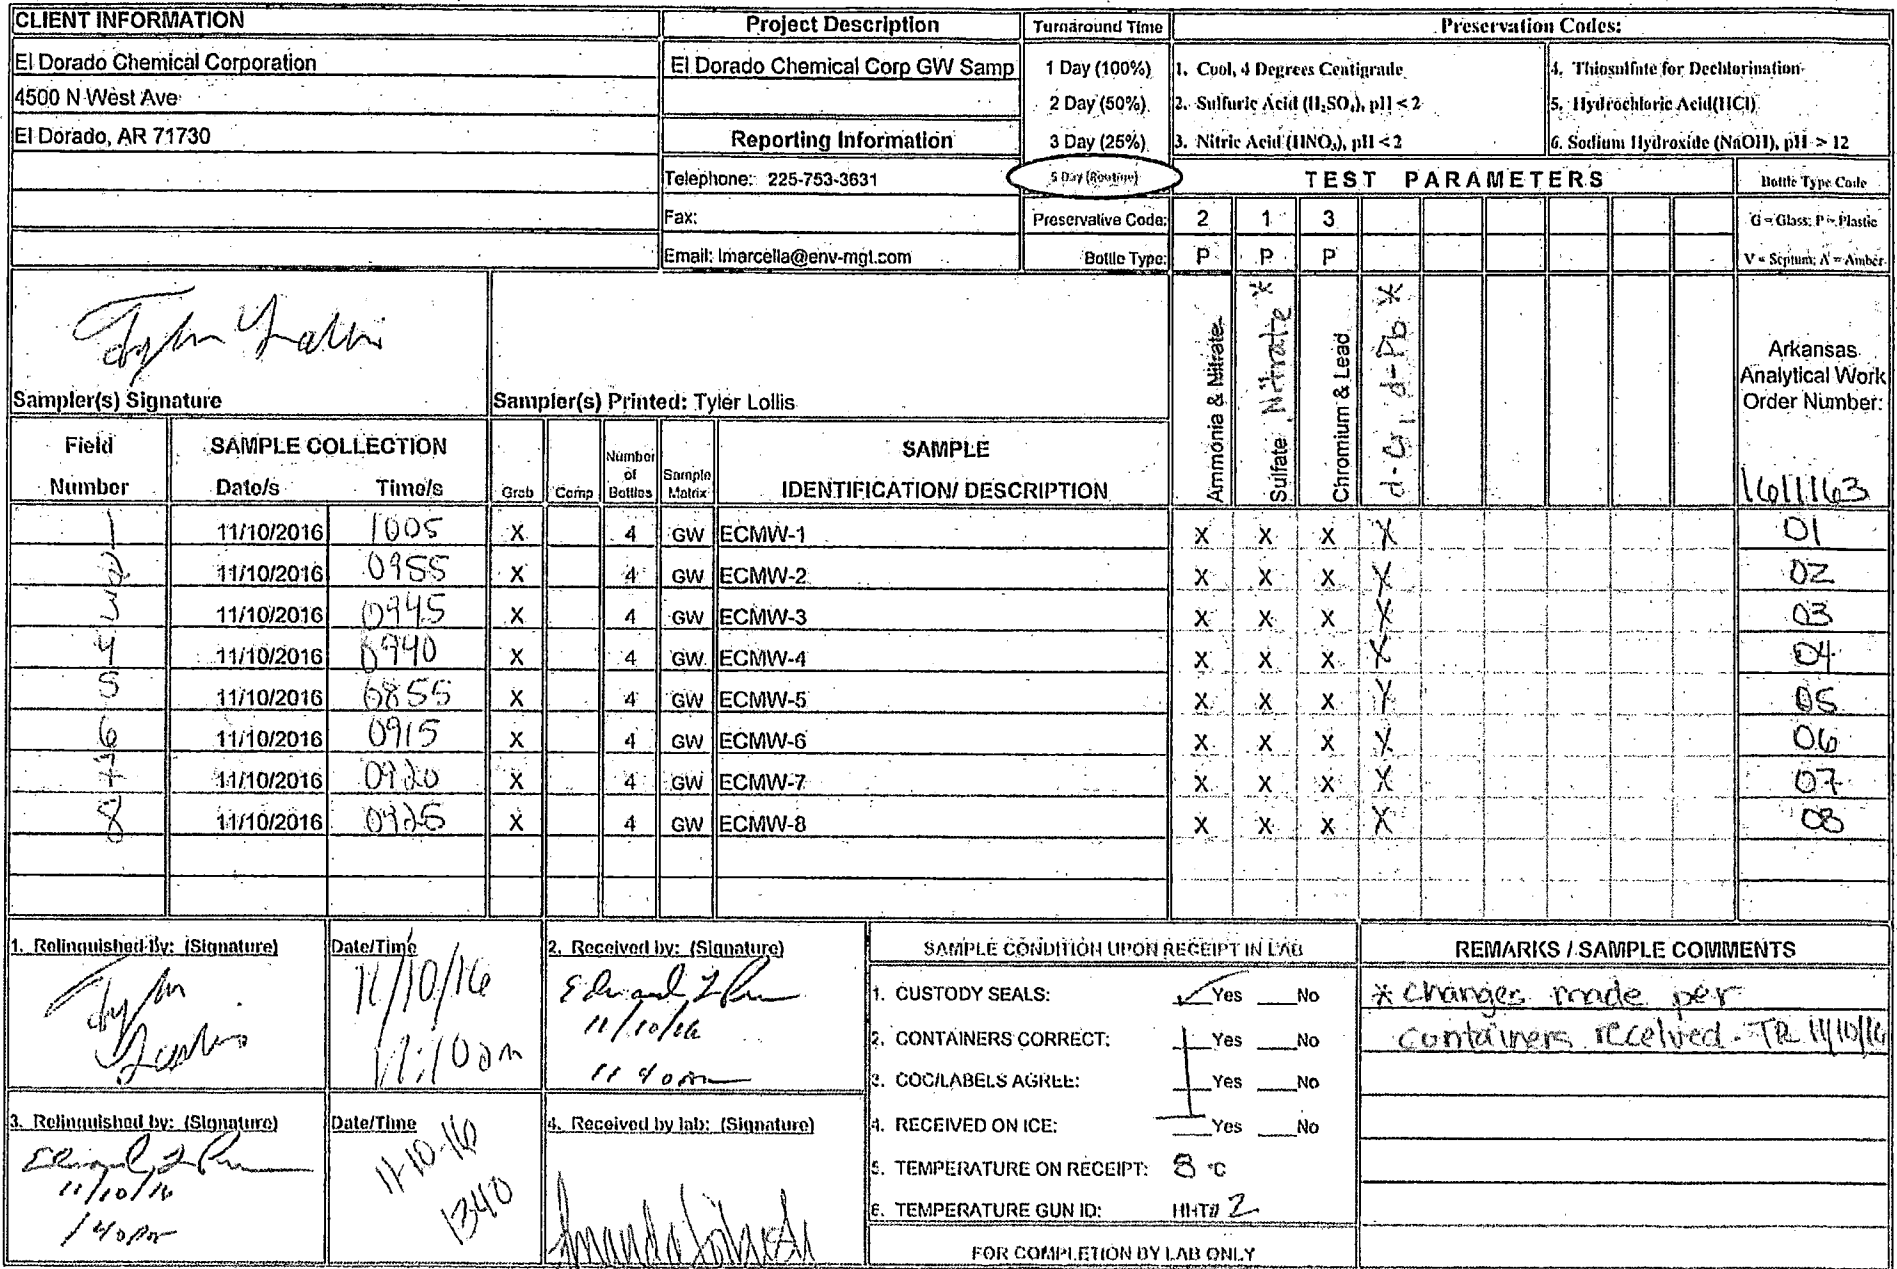 CLIENT INFORMATION
El Dorado Chemical Corporation
4500 N West Ave
El Dorado, AR 71730
Project Description
El Dorado Chemical Corp GW Samp
Reporting Information
Telephone: 225-753-3631
Fax:
Email: lmarcella@env-mgt.com
Turnaround Time
1 Day (100%)
2 Day (50%)
3 Day (25%)
5 Day (Routine)
Preservation Codes:
1. Cool, 4 Degrees Centigrade
2. Sulfuric Acid (H2SO4), pH < 2
3. Nitric Acid (HNO3), pH < 2
4. Thiosulfate for Dechlorination
5. Hydrochloric Acid(HCl)
6. Sodium Hydroxide (NaOH), pH > 12
TEST PARAMETERS
Bottle Type Code
Preservative Code: 2 1 3
G = Glass; P = Plastic
Bottle Type: P P P
V = Septum; A = Amber
Sampler(s) Signature
Sampler(s) Printed: Tyler Lollis
Ammonia & Nitrate
Sulfate, Nitrate *
Chromium & Lead
d-Cr, d-Pb *
Arkansas
Analytical Work
Order Number:
1611163
Field
Number
SAMPLE COLLECTION
Date/s Time/s
Grab
Comp
Number
of
Bottles
Sample
Matrix
SAMPLE
IDENTIFICATION/ DESCRIPTION
1 11/10/2016 1005 X 4 GW ECMW-1 X X X X 01
2 11/10/2016 0955 X 4 GW ECMW-2 X X X X 02
3 11/10/2016 0945 X 4 GW ECMW-3 X X X X 03
4 11/10/2016 0940 X 4 GW ECMW-4 X X X X 04
5 11/10/2016 0855 X 4 GW ECMW-5 X X X X 05
6 11/10/2016 0915 X 4 GW ECMW-6 X X X X 06
7 11/10/2016 0920 X 4 GW ECMW-7 X X X X 07
8 11/10/2016 0925 X 4 GW ECMW-8 X X X X 08
1. Relinquished By: (Signature)
Date/Time
11/10/16
11:10am
2. Received by: (Signature)
11/10/16
1140am
3. Relinquished by: (Signature)
11/10/16
140pm
Date/Time
11-10-16
1340
4. Received by lab: (Signature)
SAMPLE CONDITION UPON RECEIPT IN LAB
1. CUSTODY SEALS: ✓ Yes ___No
2. CONTAINERS CORRECT: ___Yes ___No
3. COC/LABELS AGREE: ___Yes ___No
4. RECEIVED ON ICE: ___Yes ___No
5. TEMPERATURE ON RECEIPT: 8 °C
6. TEMPERATURE GUN ID: HHT# 2
FOR COMPLETION BY LAB ONLY
REMARKS / SAMPLE COMMENTS
* changes made per
containers received. TR 11/10/16